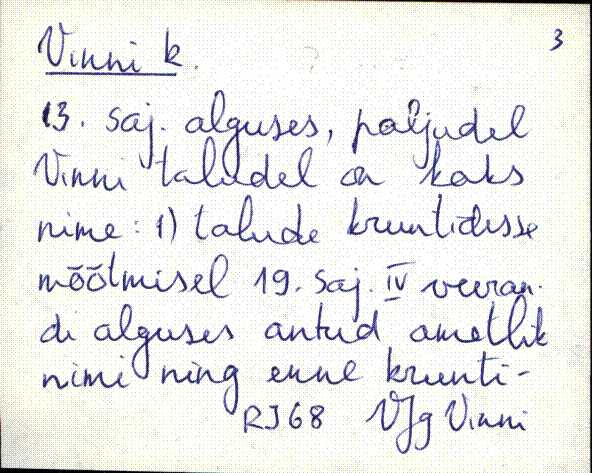 3
Vinni k.
13. saj. alguses, paljudel
Vinni taludel on kaks
nime: 1) talude kruntidesse
mõõtmisel 19. saj. IV veeran-
di alguses antud ametlik
nimi ning enne krunti-
RJ68 VJg Vinni